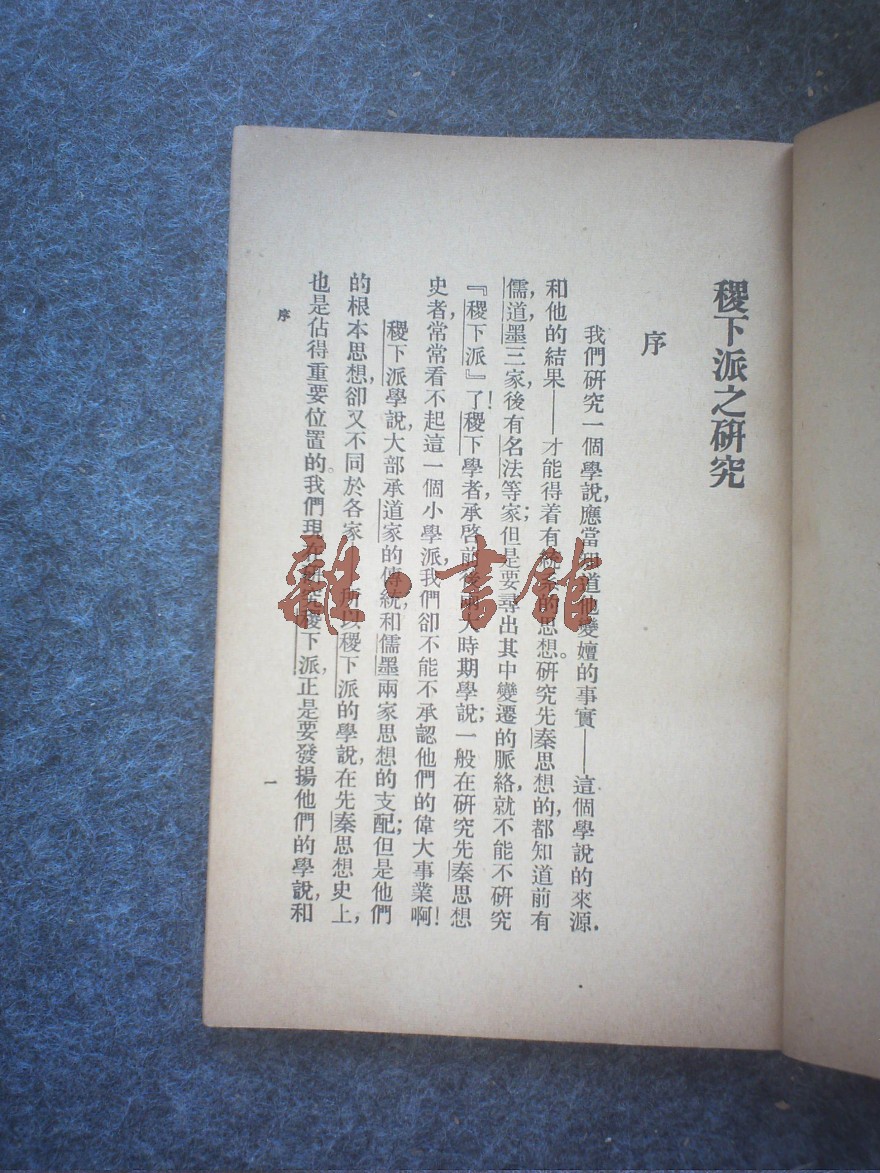 稷下派之研究
序
我們研究一個學說,應當知道他變嬗的事實——這個學說的來源,
和他的結果——才能得着有統系的思想。研究先秦思想的,都知道前有
儒,道,墨三家,後有名法等家;但是要尋出其中變遷的脈絡,就不能不研究
『稷下派』了!稷下學者,承啓前後兩大時期學說;一般在研究先秦思想
史者,常常看不起這一個小學派,我們卻不能不承認他們的偉大事業啊!
稷下派學說,大部承道家的傳統,和儒墨兩家思想的支配;但是他們
的根本思想,卻又不同於各家——所以稷下派的學說,在先秦思想史上,
也是佔得重要位置的。我們現在研究稷下派,正是要發揚他們的學說,和
序
一
雜·書館